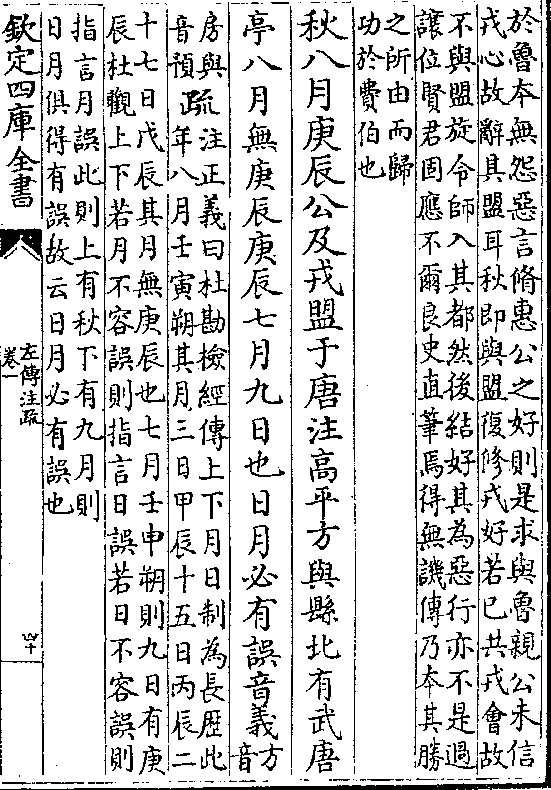 於魯本無怨惡言脩惠公之好則是求與魯親公未信
戎心故辭其盟耳秋即與盟復修戎好若已共戎會故
不與盟旋令師入其都然後結好其為惡行亦不是過
讓位賢君固應不爾良史直筆焉得無譏傳乃本其勝
之所由而歸
功於費伯也
秋八月庚辰公及戎盟于唐注高平方與縣北有武唐
亭八月無庚辰庚辰七月九日也日月必有誤音義方音
房與音預
疏注正義曰杜勘檢經傳上下月日制為長歴此
年八月壬寅朔其月三日甲辰十五日丙辰二
十七日戊辰其月無庚辰也七月壬申朔則九日有庚
辰杜觀上下若月不容誤則指言日誤若日不容誤則
指言月誤此則上有秋下有九月則
日月俱得有誤故云日月必有誤也
欽定四庫全書
左傳注疏
卷一
四十